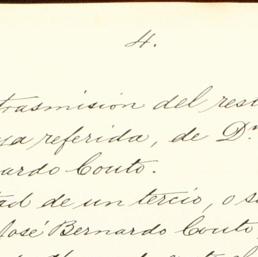 4.
trasmision del rest
ya referida, de Dn
nardo Couto.
tad de un tercio, o s
José Bernardo Couto,